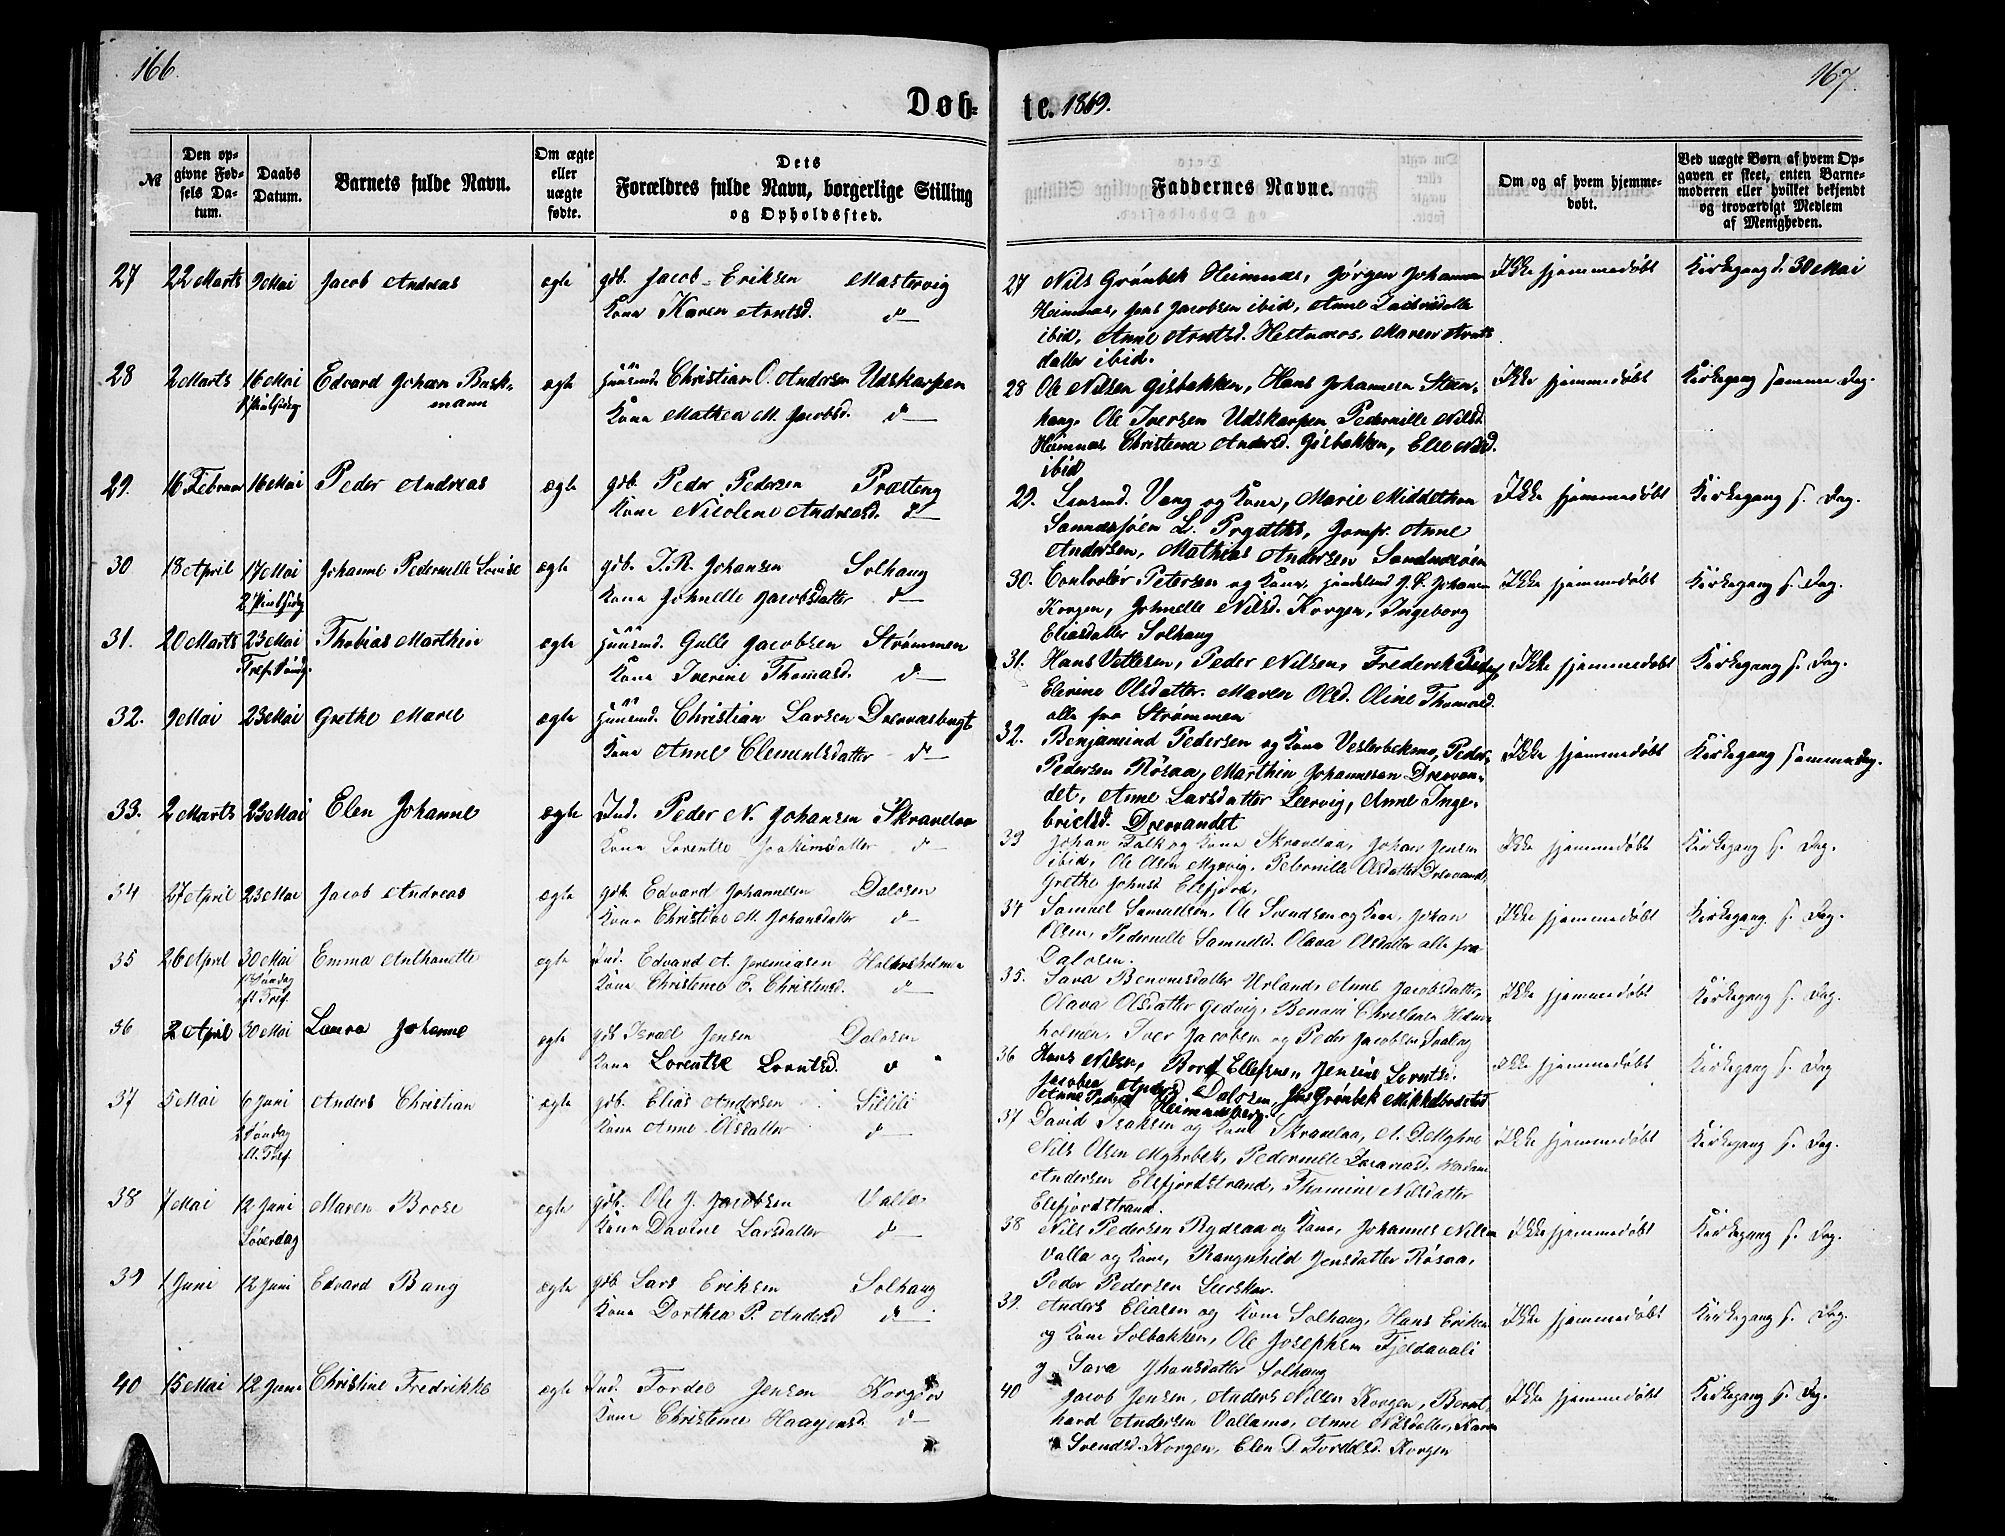 166.
167.
Døb-
te. 1869.
№
Den op-
givne Fød-
sels Da-
tum.
Daabs
Datum.
Barnets fulde Navn.
Om ægte
eller
uægte
fødte.
Dets
Forældres fulde Navn, borgerlige Stilling
og Opholdssted.
Faddernes Navne.
Om og af hvem hjemme-
døbt.
Ved uægte Børn af hvem Op-
gaven er skeet, enten Barne-
moderen eller hvilket bekjendt
og troværdigt Medlem
af Menigheden.
27 22 Marts 9 Mai Jacob Andreas ægte gdb. Jacob Eriksen Mastervig
Kone Karen Arntsd. d—
27 Nils Grønbek Heimnæs, Jørgen Johannesen
Heimnæs, Jens Jacobsen ibid, Anne
ibid, Anne Arntsd. Hestnæs, Maren Arnts
datter ibid.
Ikke hjemmedøbt
Kirkegang d. 30 Mai
28 2 Marts 16 Mai Edvard Johan Bask-
1 Pintsedag mann
ægte Huusmd. Christian O. Andersen Udskarpen
Kone Mathea M. Jacobsd. d—
28 Ole Nilsen Gisbakken, Hans Johannesen Steen-
haug, Ole Iversen Udskarpen, Pedernille Nilsd.
Heimnæs, Christence Andersd. Gisbakken, Elie Nilsd.
ibid
Ikke hjemmedøbt
Kirkegang samme Dag.
29. 16 Februar 16 Mai Peder Andreas ægte gdb. Peder Pedersen Præsteng
Kone Nicoline Andreasd. d—
29. Lensmd. Vang og Kone, Marie Middelthon
Sannæsjøen L. Prydths, Jomfr. Anne
Andersen, Mathias Andersen Sandnæsøen
Ikke hjemmedøbt
Kirkegang s. Dag.
30 18 April 17 Mai Johanne Pedernelle Lovise ægte gdb. J. R. Johansen Solhaug
2 Pintsedg Kone Johnelle Jacobsdatter d—
30. Controlør Petersen og Kone, Handelsmd J. P. Johansen
Korgen, Johnelle Nilsd. Korgen, Ingeborg
Eliasdatter Solhaug
Ikke hjemmedøbt
Kirkegang s. Dag.
31. 20 Marts 23 Mai Thobias Marthin ægte Huusmd. Gulle Jacobsen Strømmen
Tref. Sønd. Kone Iverine Thomasd. d—
31. Hans Vettesen, Peder Nilsen, Frederik Peders
Elerine Olsdatter. Maren Olsd. Oline Thomasd.
alle fra Strømmen
Ikke hjemmedøbt
Kirkegang s. Dag.
32. 9 Mai 23 Mai Grethe Marie ægte Huusmd. Christian Larsen Drevvasbugt
Kone Anne Clementsdatter d—
32. Benjamind Pedersen og Kone Vesterbekmo, Peder
Pedersen Røsaa, Marthin Johannesen Drevvan-
det, Anne Larsdatter Leervig, Anne Inge-
brietsd. Drevvandet
Ikke hjemmedøbt
Kirkegang sammedag.
33. 2 Marts 23 Mai Elen Johanne ægte Ind. Peder N. Johansen Skravelaa
Kone Lorentse Joakimsdatter d—
33 Johan Falk og Kone Skravelaa, Johan Jensen
ibid, Ole Olsen Myrvig, Peternille Olsdatter Drevvand,
Grethe Johnsd Elsfjord.
Ikke hjemmedøbt
Kirkegang s. Dag.
34 27 April 23 Mai Jacob Andreas ægte gdb. Edvard Johannesen Dalosen
Kone Christine M. Johansdatter d—
34 Samuel Samuelsen, Ole Svendsen og Kone, Johan
Olsen, Pedernelle Samuelsd. Olava Olsdatter alle fra
Dalosen.
Ikke hjemmedøbt
Kirkegang s. Dag.
35 26 April 30 Mai Emma Anthanette ægte Ind. Edvard A. Jeremiasen Holmholmen
1 Søndag Kone Christence B. Christensd. d—
eft Tref.
35. Sara Benonisdatter Urland, Anne Jacobsdatter,
Olava Olsdatter Gedvig, Benoni Christensen Holm-
holmen, Iver Jacobsen og Peder Jacobsen
Ikke hjemmedøbt
Kirkegang s. Dag.
36 2 April 30 Mai Laura Johanne ægte gdb Israel Jensen Dalosen
Kone Lorentse Lorntsd. d
36 Hans Nilsen, Bord Ellefsen, Jensine Lorntsd.
Jacobea Andersd Dalosen, Jens Grønbek Mikkelbostad
Anne Heimnæsberg.
Ikke hjemmedøbt
Kirkegang s. Dag.
37 5 Mai 6 Juni Anders Christian ægte gdb. Elias Andersen Lillebi
2 Søndag Kone Anne Olsdatter d—
eft. Tref.
37 David Isaksen og Kone Skravelaa, A. D. Myhre
Nils Olsen Myhrbek, Pedernelle Zacariasd. Madame
Andersen Elsfjordstrand, Thomine Nilsdatter
Elsfjordstrand.
Ikke hjemmedøbt
Kirkegang s. Dag.
38 7 Mai 12 Juni Maren Brose ægte gdb. Ole J. Jacobsen Valla
Løverdag Kone Davine Larsdatter d—
38 Nils Pedersen Rydsaa og Kone, Johannes Nilsen
Valla og Kone, Rangnhild Jensdatter Røsaa,
Peder Pedersen Leerskar.
Ikke hjemmedøbt
Kirkegang s. Dag.
39 1 Juni 12 Juni Edvard Bang ægte gdb. Lars Eriksen Solhaug
Kone Dorthea P. Andersd d—
39. Anders Eliasen og Kone Solhaug, Hans Eriksen
og Kone Solbakken, Ole Josephsen Fjeldavali
og Sara Johansdatter Solhaug
Ikke hjemmedøbt
Kirkegang s. Dag.
40 15 Mai 12 Juni Christine Fredrikke ægte Ind. Tordel Jensen Korgen
Kone Christence Haagensd. d—
40 Jacob Jensen, Anders Nilsen Korgen, Bernt-
hard Andersen Vallamo, Anne Nilsdatter, Karen
Svendsd. Korgen, Elen D. Tordelsd. Korgen
Ikke hjemmedøbt
Kirkegang s. Dag.